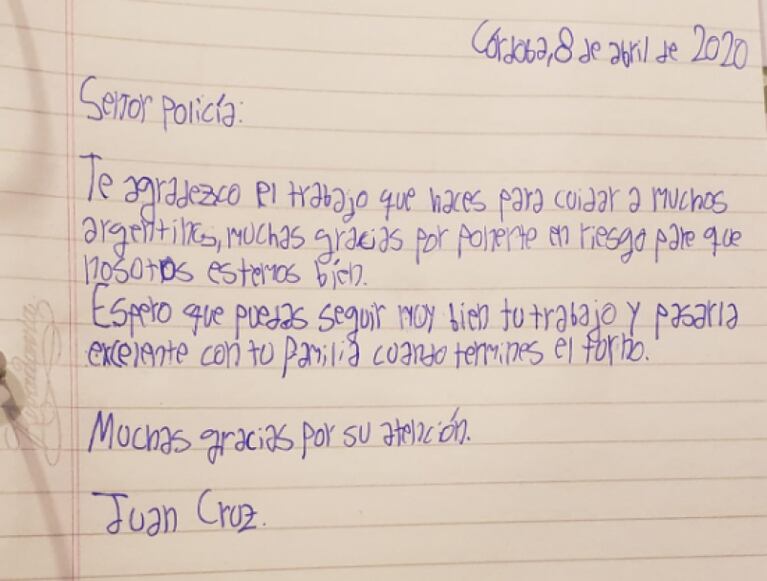 Córdoba, 8 de abril de 2020
Señor policía:
Te agradezco el trabajo que haces para cuidar a muchos
argentinos, muchas gracias por ponerte en riesgo para que
nosotros estemos bien.
Espero que puedas seguir muy bien tu trabajo y pasarla
excelente con tu familia cuando termines el turno.
Muchas gracias por su atención.
Juan Cruz.
Rivadavia